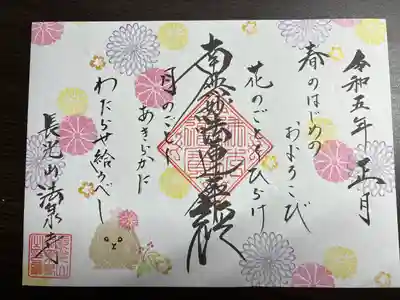 令和五年 正月
春のはじめの
およろこび
花のごとくひらけ
南無妙法蓮華経
月のごとく
あきらかに
わたらせ給うべし
長光山 法泉寺